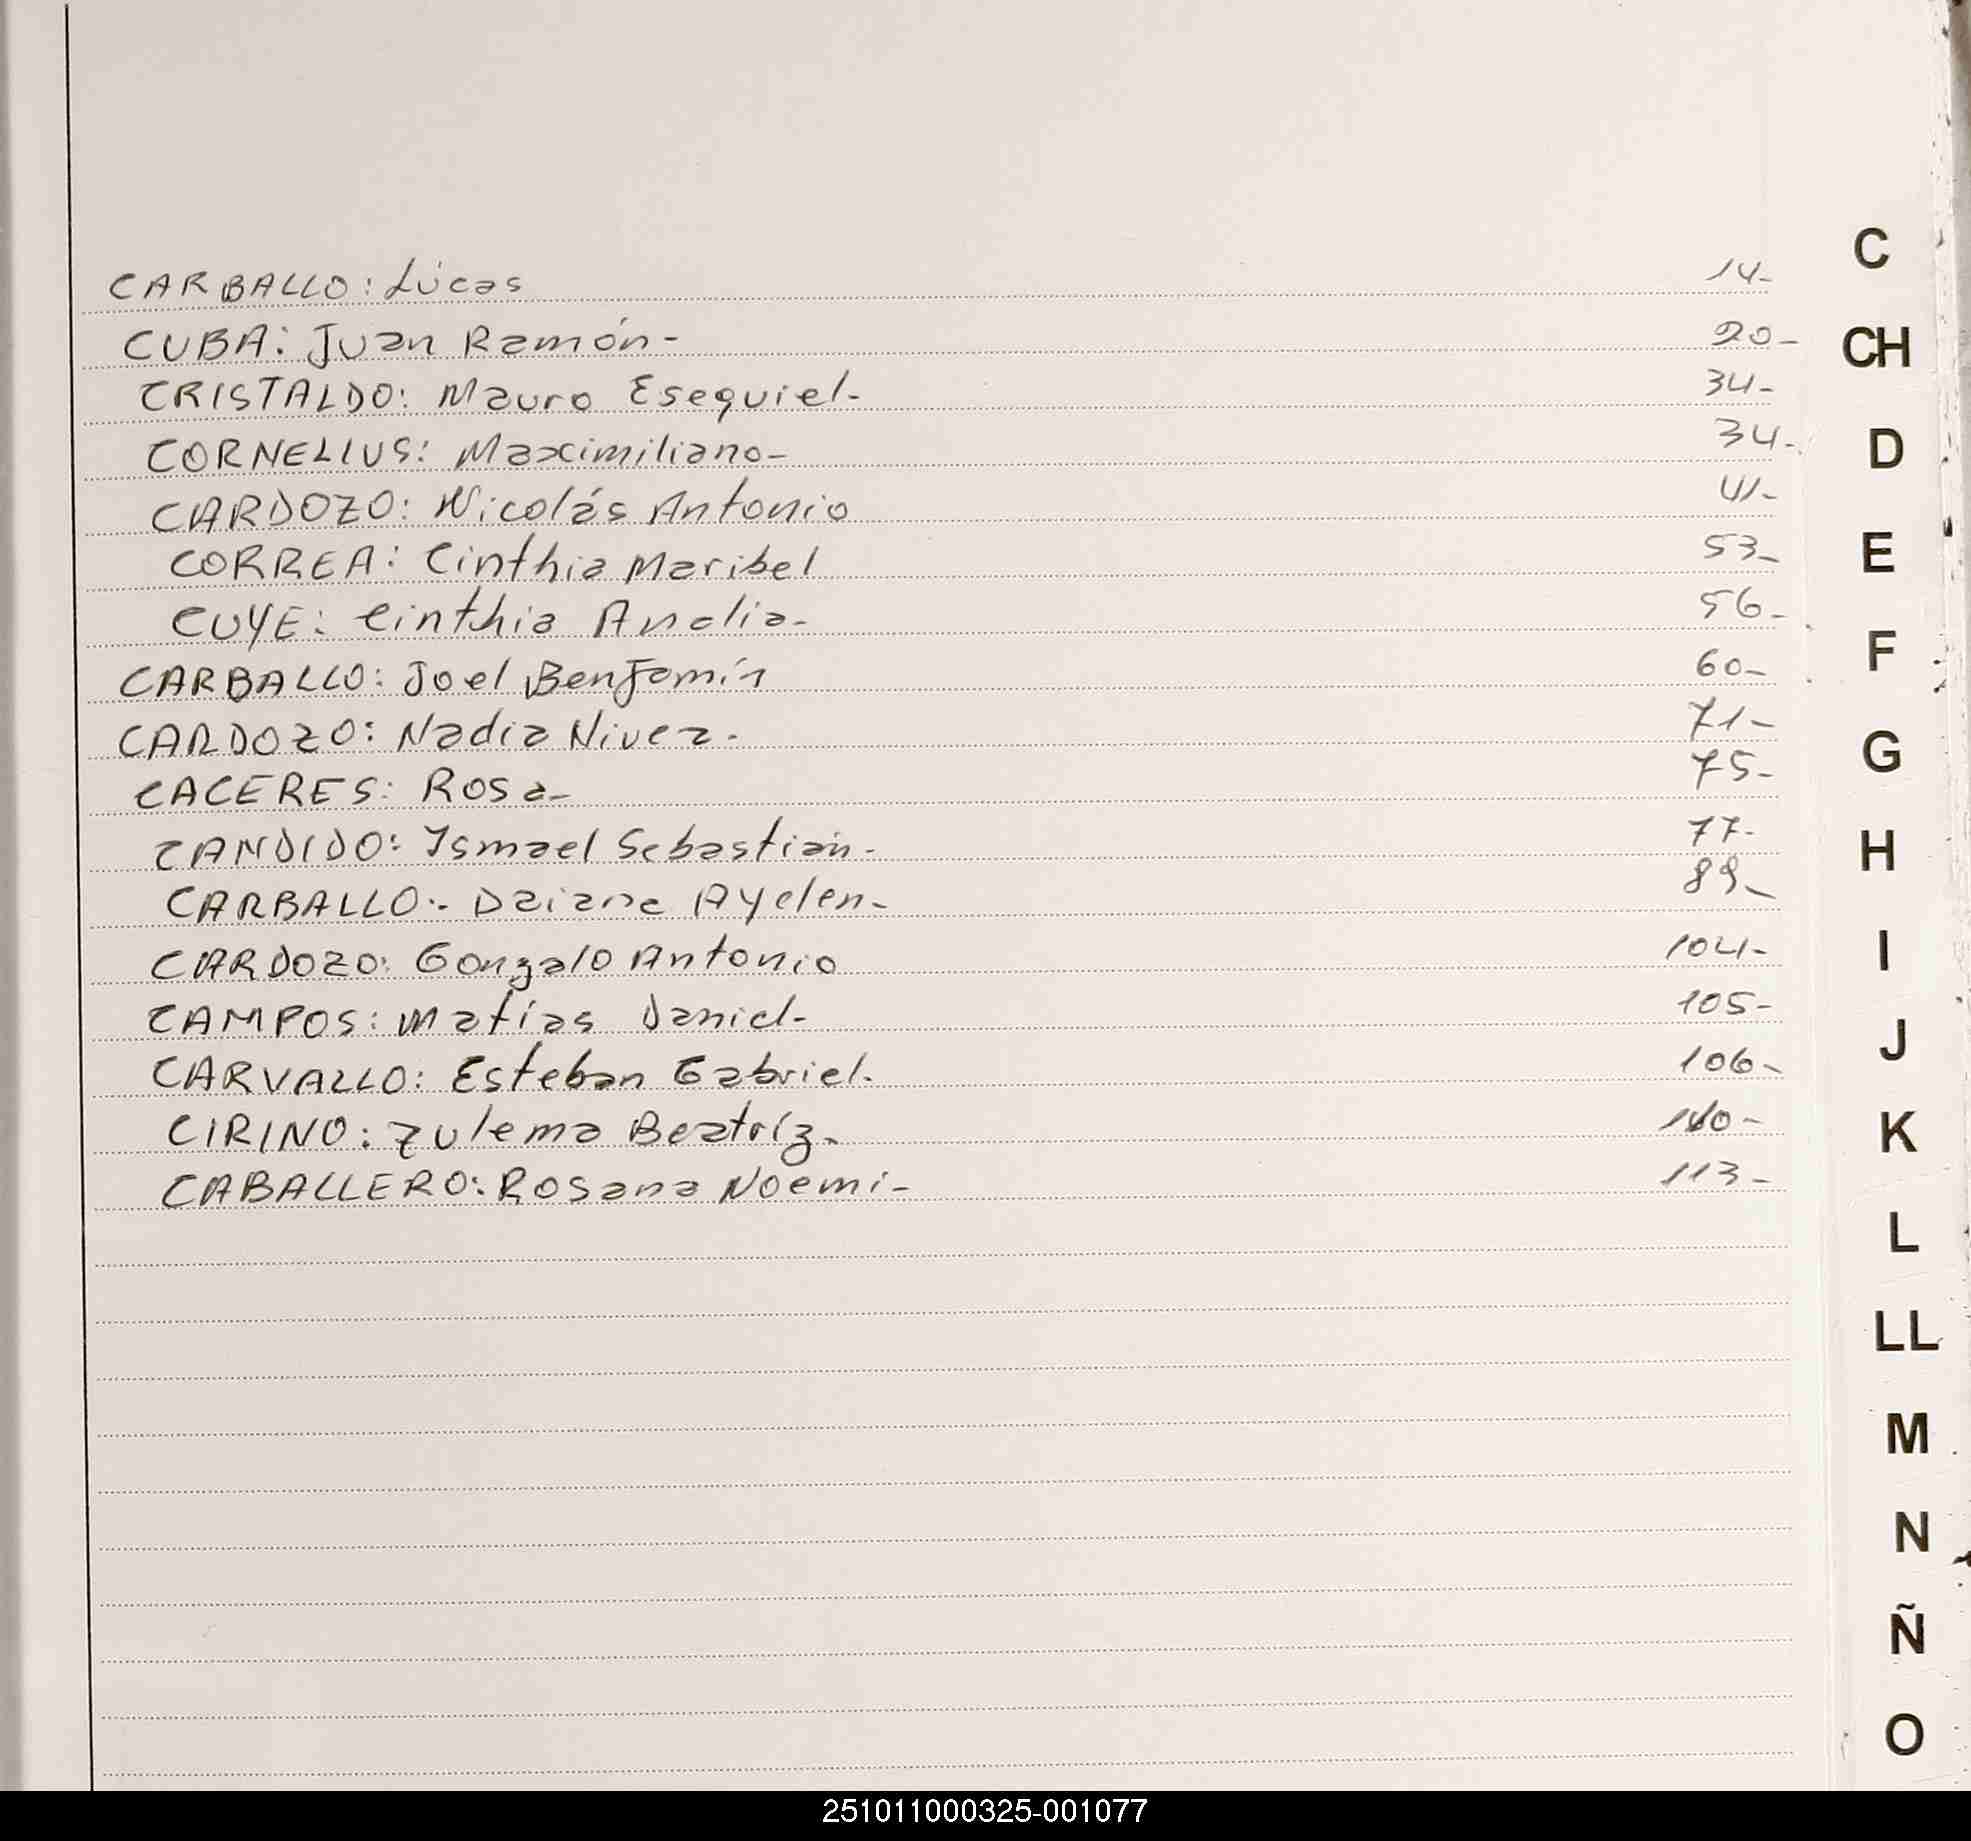 CARBALLO: Lúcas 14-
CUBA: Juan Ramón- 20-
CRISTALDO: Mauro Esequiel- 34-
CORNELIUS: Maximiliano- 34-
CARDOZO: Nicolás Antonio 41-
CORREA: Cinthia Maribel 53-
CUYE: Cinthia Analia- 56-
CARBALLO: Joel Benjamín 60-
CARDOZO: Nadia Nivea- 71-
CACERES: Rosa- 75-
CANDIDO: Ismael Sebastián- 77-
CARBALLO:- Daiana Ayelen- 89-
CARDOZO: Gonzalo Antonio 104-
CAMPOS: Matías Daniel- 105-
CARVALLO: Esteban Gabriel. 106-
CIRINO: Zulema Beatríz-
CABALLERO: Rosana Noemi- 113-
C
CH
D
E
F
G
H
I
J
K
L
LL
M
N
Ñ
O
251011000325-001077